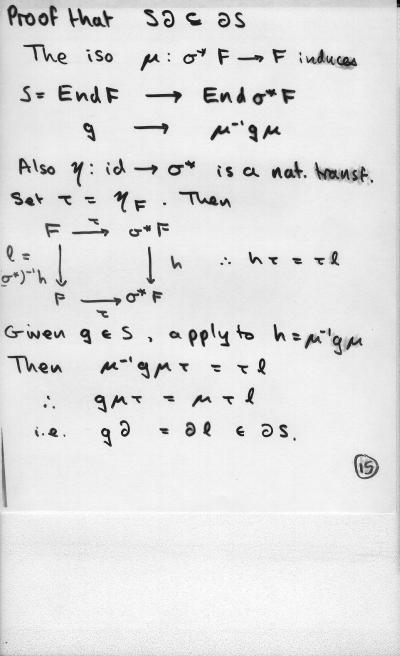 Proof that S∂ ⊂ ∂S
The iso μ: σ* F → F induces
S = End F → End σ* F
g → μ⁻¹ g μ
Also η: id → σ* is a nat. transf.
Set τ = η_F. Then
F →τ σ* F
l = (σ*)⁻¹h ↓ ↓ h ∴ hτ = τl
F →τ σ* F
Given g ∈ S, apply to h = μ⁻¹gμ
Then μ⁻¹gμτ = τl
∴ gμτ = μτl
i.e. g∂ = ∂l ∈ ∂S.
15